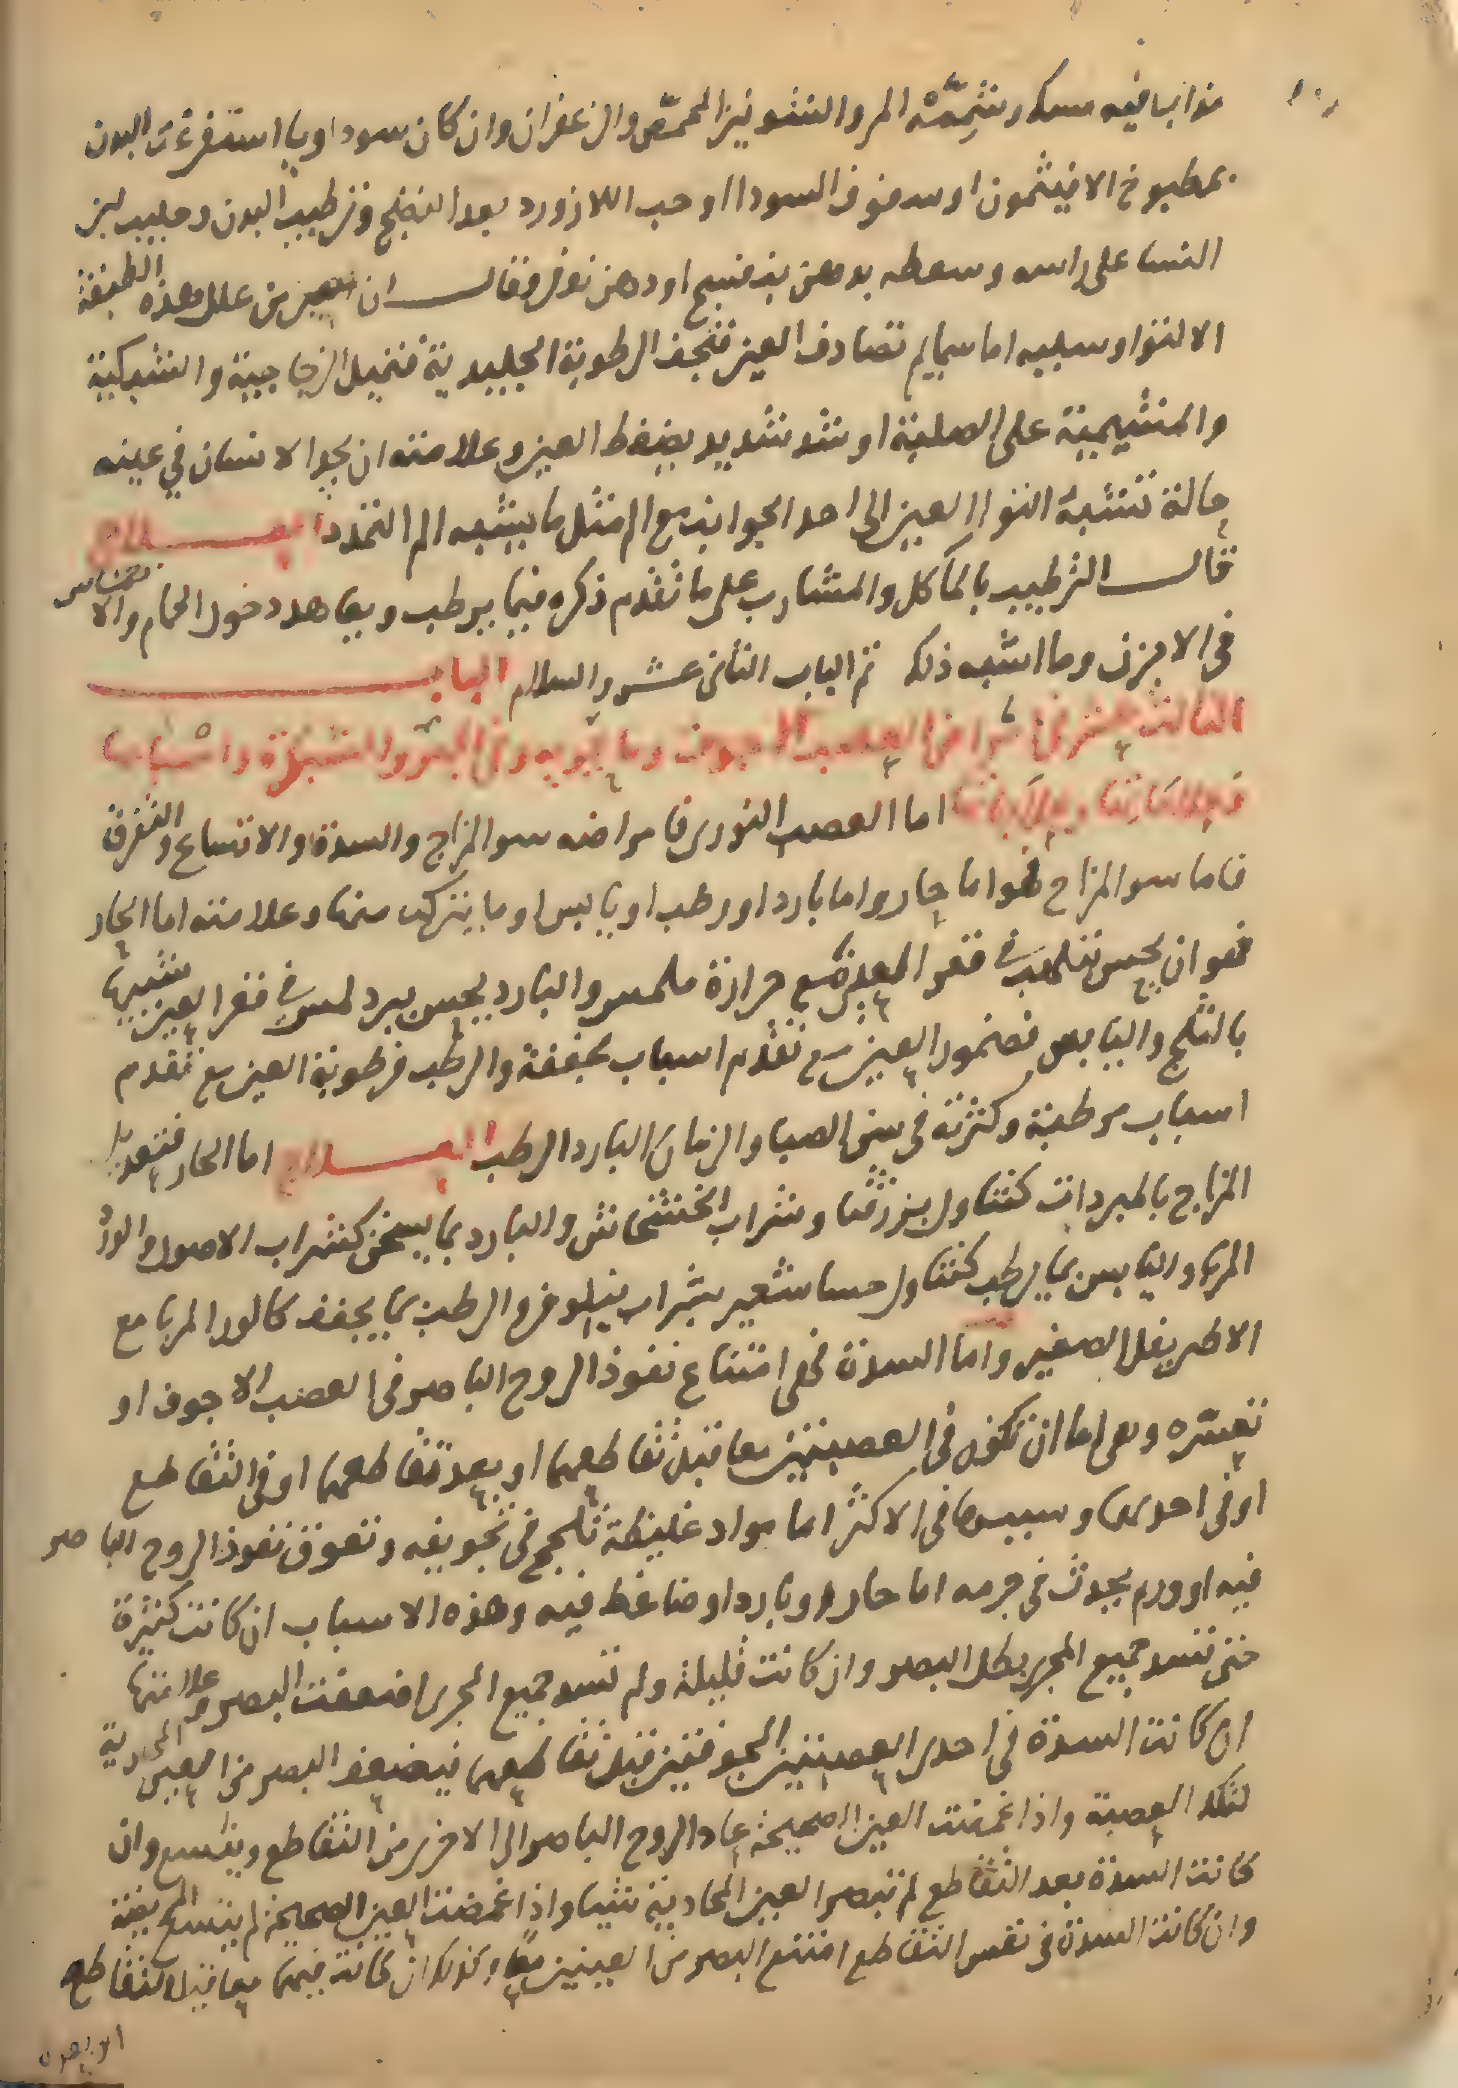 فيه سكر وشممه المر والشونيز المحمص والزعفران وان كان سوداويا استفرغت البدن
بمطبوخ الافيثمون او سفوف السودا او حب اللازورد بعد النضج وترطيب البدن وحليب لبن
النسا على راسه وسعطه بدهن بنفسج او دهن نوفر وقال ان علل هذه الطبقة
الالتوا وسببه اما سمايم تصادف العين فتجف الرطوبة الجليدية فتميل الزجاجية والشبكية
والمشيمية على الصلبة او شد شديد يضغط العين وعلامته ان يجد الانسان في عينه
حالة تشبة التوا العين الى احد الجوانب مع الم مثل ما يشبه الم التمدد العلاج
قال الترطيب بالماكل والمشارب على ما تقدم ذكره فيما يرطب ويعاهد دخول الحمام والانغماس
في الابزن وما اشبه ذلك تم الباب الثاني عشر والسلام الباب
الثالث عشر في امراض العصب المجوف وما يحويه وفي واسبابها
وعلاماتها وعلاجاتها اما العصب النوري فامراضه سو المزاج والسدة والاتساع والتفرق
فاما سو المزاج فهو اما حار واما بارد او رطب او يابس او ما يتركب منها وعلامته اما الحار
فهو ان يحس بتلهب في قعر العين مع حرارة ملمس والبارد يحس ببرد لمس في قعر العين شبيها
بالثلج واليابس فضمور العين مع تقدم اسباب مجففة والرطب فرطوبة العين مع تقدم
اسباب مرطبة وكثرته في سن الصبا والزمان البارد الرطب العلاج اما الحار فتعديل
المزاج بالمبردات كتناول بزرقثا وشراب الخشخاش والبارد بما يسخن كشراب الاصول والورد
المربا واليابس بما يرطب كتناول حسا شعير بشراب نيلوفر والرطب بما يجفف كالورد المربا مع
الاطريفل الصغير واما السدة فهي امتناع نفوذ الروح الباصر في العصب الاجوف او
تعسره وهي اما ان تكون في العصبتين معا قبل تقاطعهما او بعد تقاطعهما او في التقاطع
او في احدىهما وسببها في الاكثر اما مواد غليظة تلحج في تجويفه وتعوق نفوذ الروح الباصر
فيه او ورم يحدث في جرمه اما حار او بارد او ضاغط فيه وهذه الاسباب ان كانت كثيرة
حتى تسد جميع المجرى بطل البصر وان كانت قليلة ولم تسد جميع المجرى اضعفت البصر وعلامتها
ان كانت السدة في احدى العصبتين المجوفتين قبل تقاطعهما فيضعف البصر من العين المحاذية
لتلك العصبة واذا غمضت العين الصحيحة عاد الروح الباصر الى الاخرى من التقاطع ويتسع وان
كانت السدة بعد التقاطع لم تبصر العين المحاذية شيا واذا غمضت العين الصحيحة لم يتسع المريضة
وان كانت السدة في نفس التقاطع امتنع البصر من العينين معا وكذلك ان كانت فيهما معا قبل التقاطع